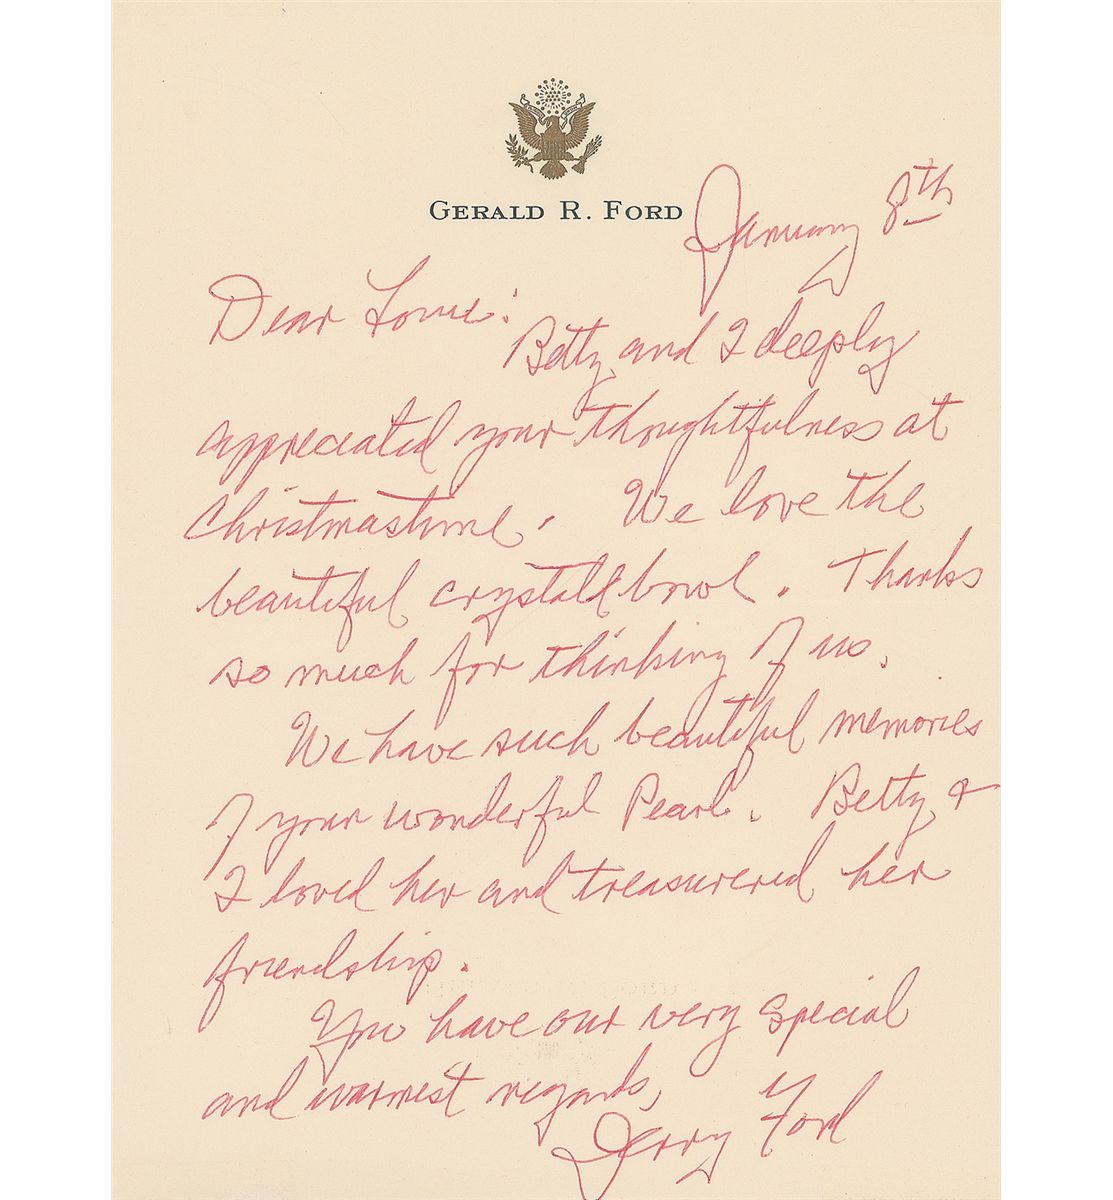 GERALD R. FORD
January 8th
Dear Louie:
Betty and I deeply
appreciated your thoughtfulness at
Christmastime. We love the
beautiful crystall bowl. Thanks
so much for thinking of us.
We have such beautiful memories
of your wonderful Pearl. Betty &
I loved her and treasurered her
friendship.
You have our very special
and warmest regards,
Jerry Ford